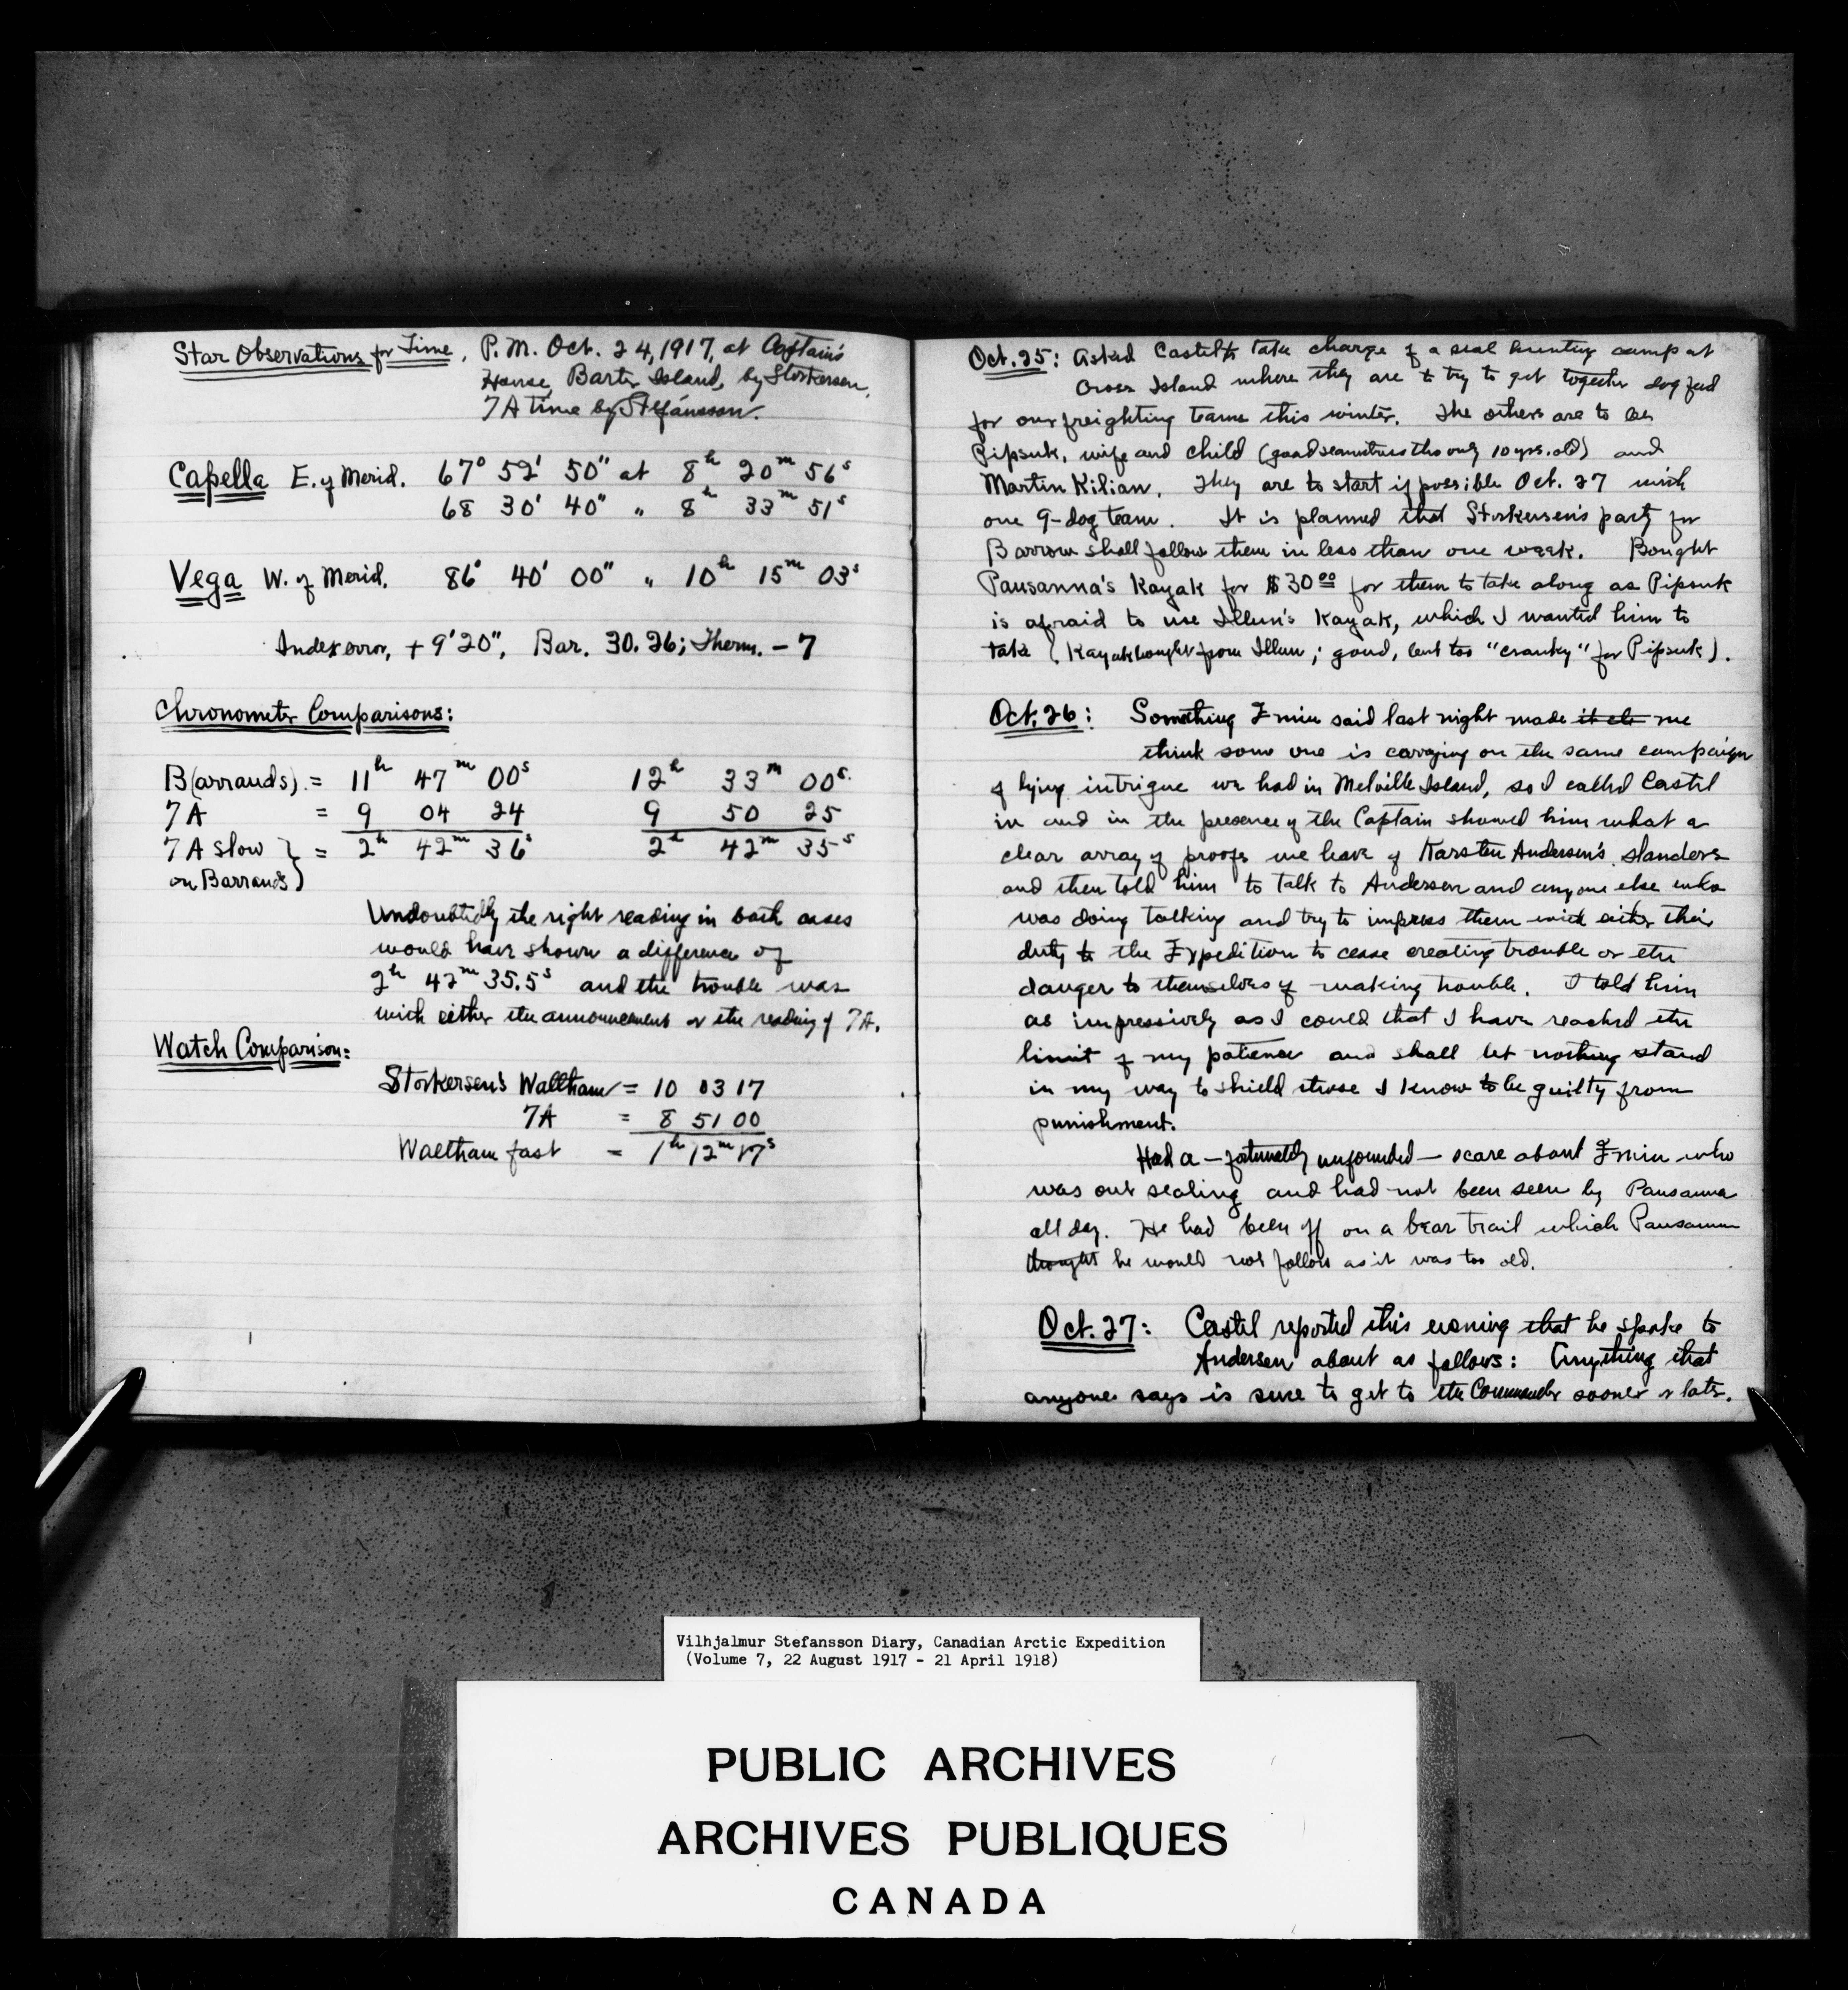 Star Observations for Time, P.M. Oct. 24, 1917, at Captain's
House, Barter Island, by Storkersen,
7A time by Stefánsson.
Capella E. of Merid. 67° 52' 50" at 8h 20m 56s
68 30' 40" " 8h 33m 51s
Vega W. of Merid. 86° 40' 00" " 10h 15m 03s
Index error, + 9' 20", Bar. 30.26; Therm. - 7
Chronometer Comparisons:
B(arrauds) = 11h 47m 00s 12h 33m 00s.
7A = 9 04 24 9 50 25
7A slow } = 2h 42m 36s 2h 42m 35s
on Barrauds)
Undoubtedly the right reading in both cases
would have shown a difference of
2h 42m 35.5s and the trouble was
with either the announcement or the reading of 7A.
Watch Comparison:
Storkersen's Waltham = 10 03 17
7A = 8 51 00
Waltham fast = 1h 12m 17s
Oct. 25: Asked Castel to take charge of a seal hunting camp at
Cross Island where they are to try to get together dog feed
for our freighting teams this winter. The others are to be
Pipsuk, wife and child (good seamstress tho only 10 yrs. old) and
Martin Kilian. They are to start if possible Oct. 27 with
one 9-dog team. It is planned that Storkersen's party for
Barrow shall follow them in less than one week. Bought
Pausanna's Kayak for $30.00 for them to take along as Pipsuk
is afraid to use Illun's Kayak, which I wanted him to
take (Kayak bought from Illun; good, but too "cranky" for Pipsuk).
Oct. 26: Something Emiu said last night made it cle me
think some one is carrying on the same campaign
of lying intrigue we had in Melville Island, so I called Castel
in and in the presence of the Captain showed him what a
clear array of proofs we have of Karsten Andersen's slanders
and then told him to talk to Andersen and anyone else who
was doing talking and try to impress them with either their
duty to the Expedition to cease creating trouble or the
danger to themselves of making trouble. I told him
as impressively as I could that I have reached the
limit of my patience and shall let nothing stand
in my way to shield those I know to be guilty from
punishment.
Had a — fortunately unfounded — scare about Emiu who
was out sealing and had not been seen by Pausanna
all day. He had been off on a bear trail which Pausanna
thought he would not follow as it was too old.
Oct. 27: Castel reported this evening that he spoke to
Andersen about as follows: Anything that
anyone says is sure to get to the Commander sooner or later.
Vilhjalmur Stefansson Diary, Canadian Arctic Expedition
(Volume 7, 22 August 1917 - 21 April 1918)
PUBLIC ARCHIVES
ARCHIVES PUBLIQUES
CANADA